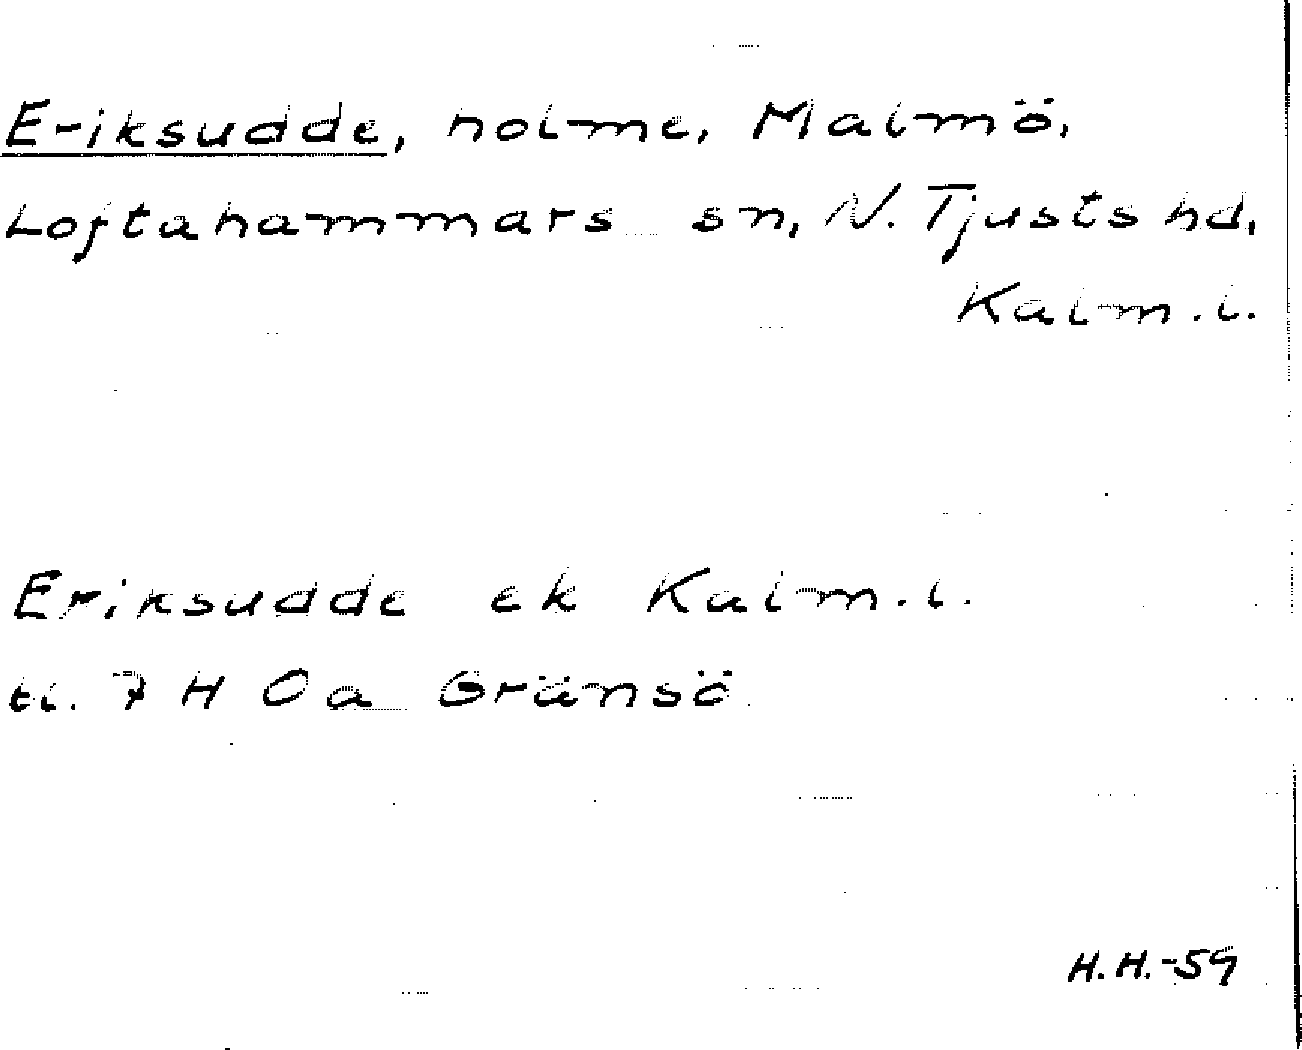 Eriksudde, holme, Malmö,
Loftahammars sn, N. Tjusts hd,
Kalm. l.
Eriksudde ek Kalm. l.
bl. 7 H 0a Gränsö
H.H.-59